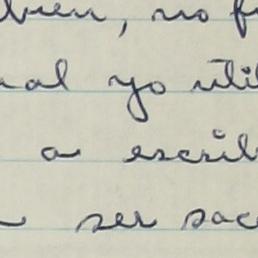 bien, no f
al yo utili
a escrib
ser sac